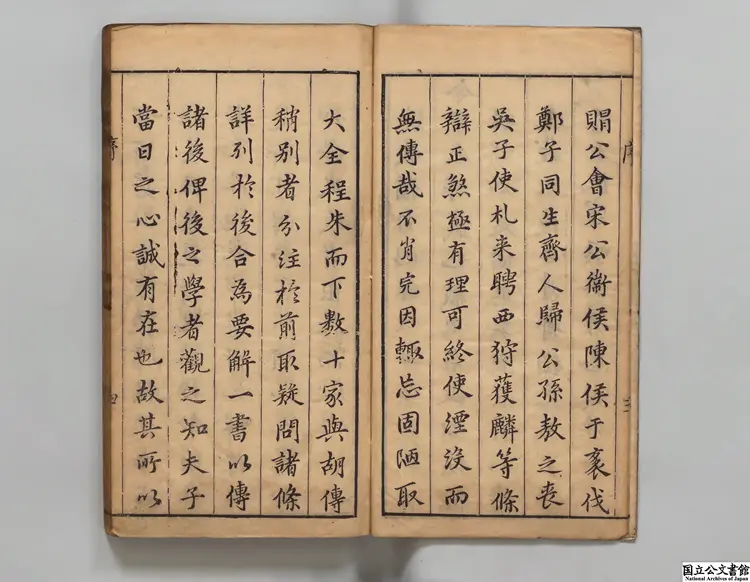 賵公會宋公衞侯陳侯于袤伐
鄭子同生齊人歸公孫敖之喪
吳子使札来聘西狩獲麟等條
辯正煞極有理可終使湮没而
無傳哉不肖完因輙忘固陋取
大全程朱而下數十家與胡傳
稍别者分注於前取疑問諸條
詳列於後合為要解一書以傳
諸後俾後之學者觀之知夫子
當日之心誠有在也故其所以
国立公文書館
National Archives of Japan